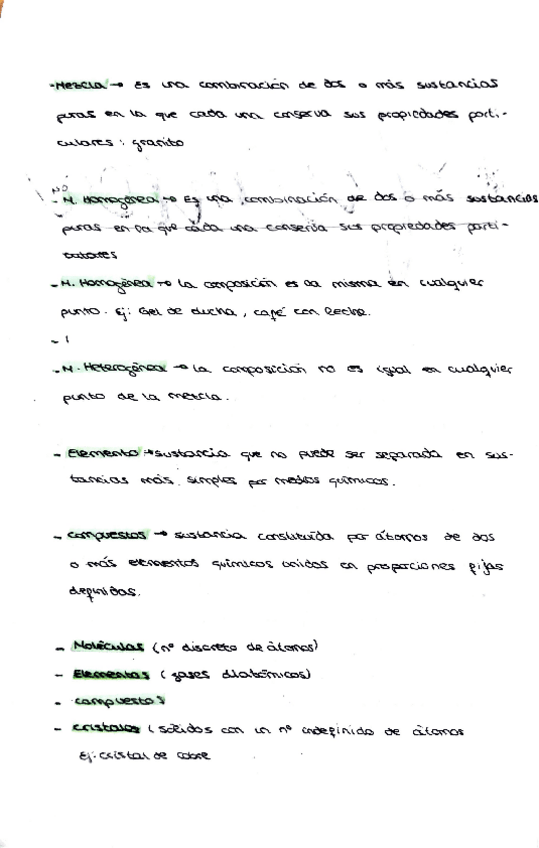 -Mezcla → Es una combinación de dos o más sustancias
puras en la que cada una conserva sus propiedades parti-
culares: granito
NO
- M. Homogénea → Es una combinación de dos o más sustancias
puras en la que cada una conserva sus propiedades parti-
culares
- M. Homogénea → La composición es la misma en cualquier
punto. Ej: Gel de ducha, café con leche.
- M. Heterogénea → La composición no es igual en cualquier
punto de la mezcla.
- Elemento → sustancia que no puede ser separada en sus-
tancias más simples por medios químicos.
- Compuestos → sustancia constituida por átomos de dos
o más elementos químicos unidos en proporciones fijas
definidas.
- Moléculas (nº discreto de átomos)
- Elementos (gases diatómicos)
- compuestos
- cristales (sólidos con un nº indefinido de átomos
Ej: cristal de cobre